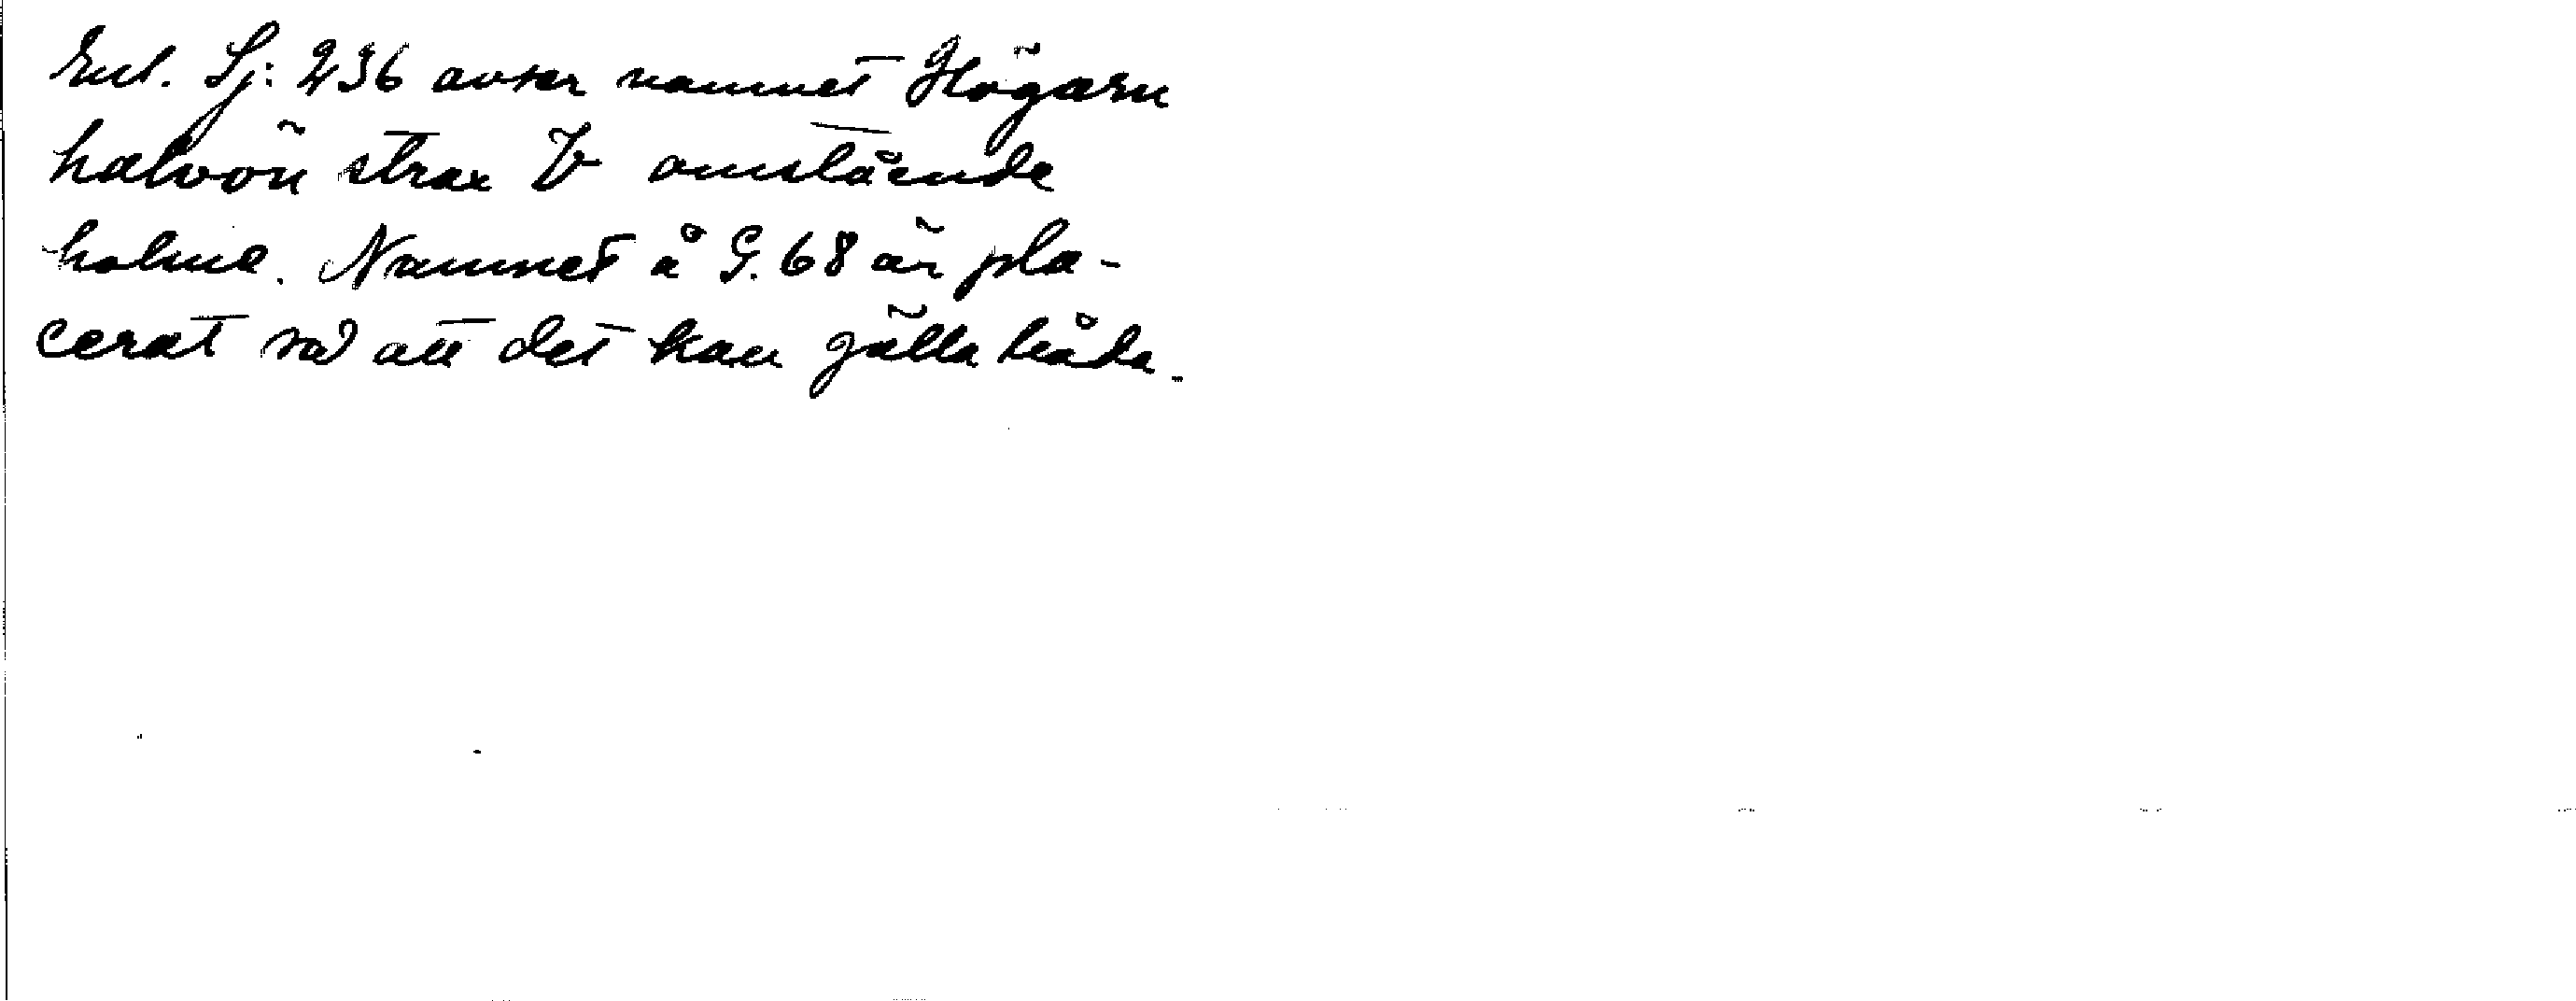 Enl. Sj: 236 avser namnet Högarn
halvön strax V omstående
holme. Namnet å G. 68 är pla-
cerat så att det kan gälla båda.